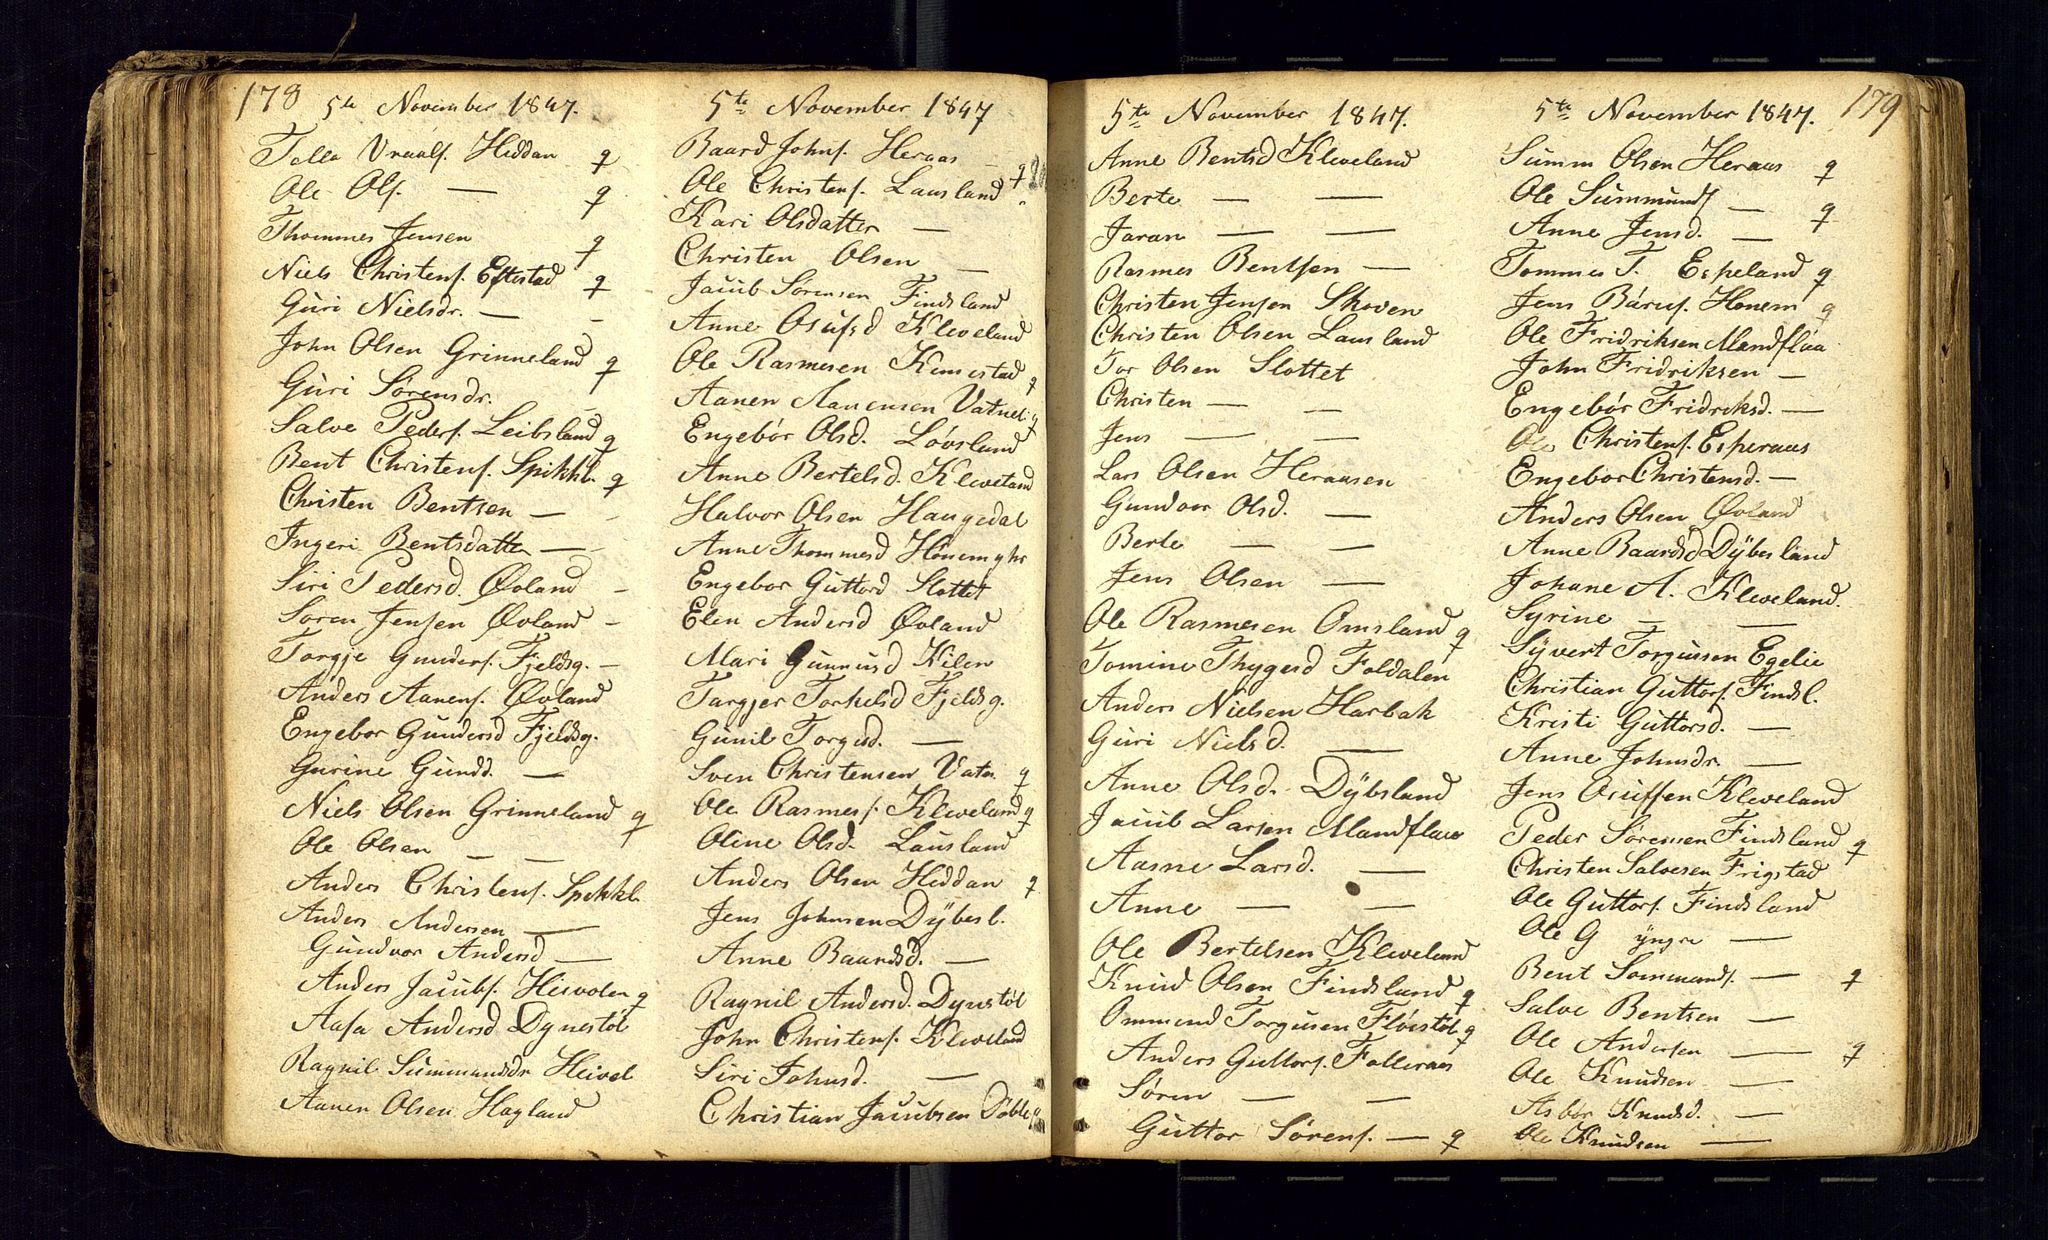 178
5te November 1847.
Tolle Vraalf. Heddan q
Ole Olf. — q
Thommes Jensen q
Niels Christenf. Eftestad q
Guri Nielsdr. — -
John Olsen Grinneland q
Guri Sørensdr.
Salve Pederf. Leibsland q
Bent Christenf. Spikkl. q
Christen Bentsen — -
Ingeri Bentsdatter —
Siri Pedersd. Øvland -
Søren Jensen Øvland -
Torgje Gunderf. Fjeldsg. —
Anders Aanenf. Øvland
Engebor Gundersd Fjeldsg.
Gurine Gundd. —
Niels Olsen Grinneland q
Ole Olsen — —
Anders Christenf. Spikkl.
Anders Andersen —
Gundvor Andersd —
Anders Jacubf. Heivolen q
Aasa Andersd Dynestøl
Ragnil Summundsdr Heivol
Aanen Olsen Hagland
5te November 1847
Baard Johnf. Heraas —
Ole Christenf. Lausland q
Kari Olsdatter —
Christen Olsen —
Jacub Sørensen Findsland
Anne Osufsd Kleveland
Ole Rasmesen Kimestad q
Aanen Aanensen Vatnel. q
Engebør Olsd. Løvsland
Anne Bertelsd. Kleveland
Halvor Olsen Haugedal
Anne Thommesd Hønemyhr
Engebor Guttord Slottet
Elen Andersd Øvland
Mari Gunnusd Kilen
Targjer Torkelsd Fjeldsg.
Gunil Torgesd. —
Sven Christensen Vatn. q
Ole Rasmesf. Kleveland q
Oline Olsd. Lausland
Anders Olsen Heddan q
Jens Johnsen Dÿbesl.
Anne Baardsd. —
Ragnil Andersd. Dynestøl
John Christenf. Kleveland
Siri Johnsd. —
Christian Jacubsen Døble q
5te November 1847.
Anne Bentsd Kleveland
Berte — —
Jaran — —
Rasmes Bentsen —
Christen Jensen Skoven
Christen Olsen Lausland
Tor Olsen Slottet
Christen — —
Jens — —
Lars Olsen Heraasen
Gundvor Olsd. —
Berte — —
Jens Olsen —
Ole Rasmesen Omsland q
Tomine Thygesd Foldalen
Anders Nielsen Harbak
Guri Nielsd. —
Anne Olsd. Dÿbsland
Jacub Larsen Mandflaae
Aasne Larsd. —
Anne — —
Ole Bertelsen Kleveland
Knud Olsen Findsland q
Ommund Torgusen Fløistøl q
Anders Guttorf. Folleraas
Søren — —
Guttor Sørenf. — q
179
5te November 1847.
Summ Olsen Heraas q
Ole Summundf — q
Anne Jensd. —
Tommes T. Espeland q
Jens Bÿruf. Honem q
Ole Fridriksen Mandflaa
John Fridriksen —
Engebør Fridriksd. —
Ole Christenf. Esperaas
Engebor Christensd. —
Anders Olsen Øvland
Anne Baardsd Dÿbesland
Johane A. Kleveland.
Syrine — —
Sÿvert Torgussen Egelie
Christian Guttorf. Findsl.
Kristi Guttorsd. —
Anne Johnsdr. —
Jens Osufsen Kleveland
Peder Sørensen Findsland q
Christen Salvesen Frigstad
Ole Guttorf. Findsland
Ole G ÿngre —
Bent Sommundf. — q
Salve Bentsen —
Ole Andersen — q
Ole Knudsen —
Asbør Knudsd. —
Ole Knudsen —